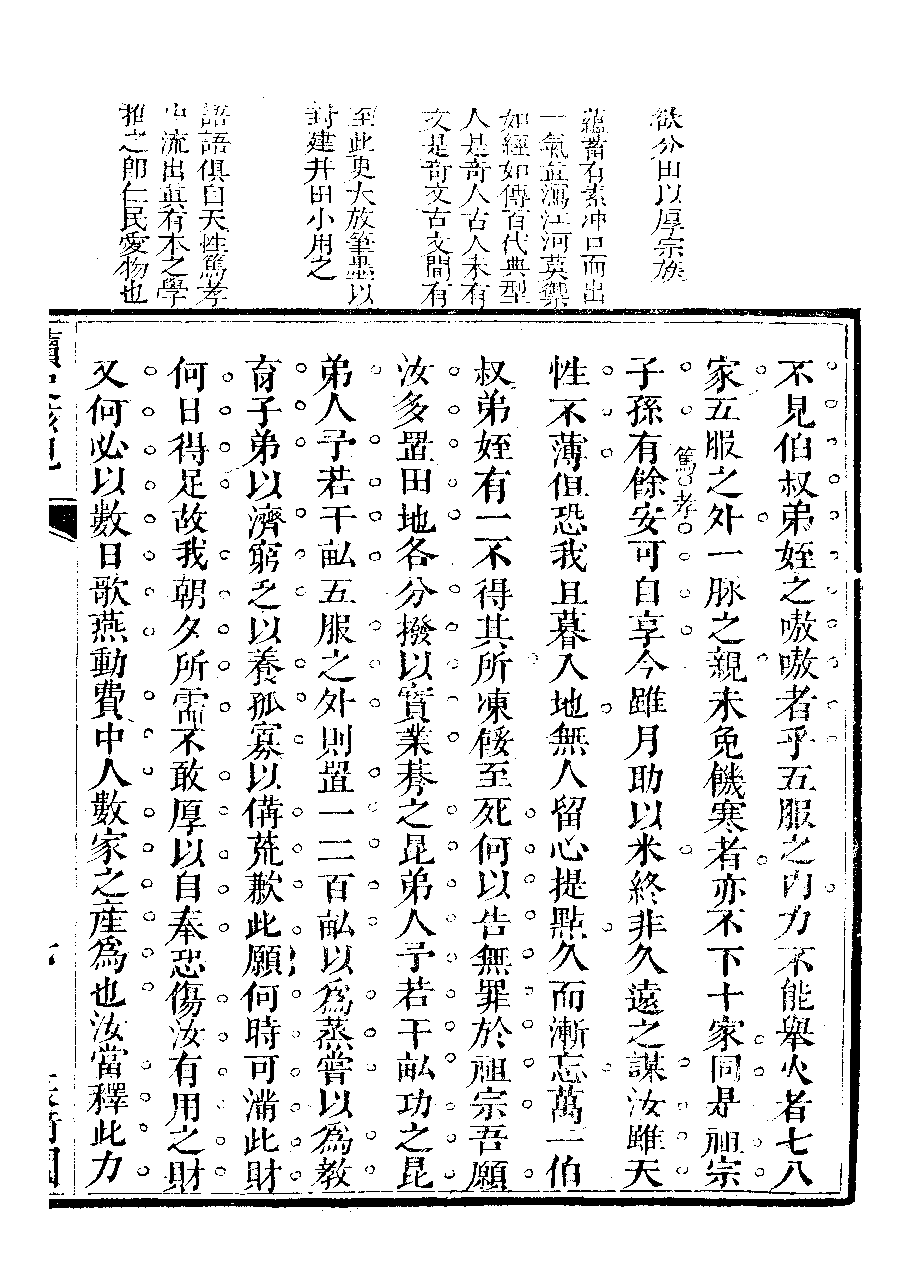 欲分田以厚宗族
蘊蓄有素冲口而出
一氣直瀉江河莫禦
如經如傳百代典型
人是奇人古人未有
文是奇文古文間有
至此更大放筆墨以
封建井田小用之
語語俱自天性篤孝
中流出眞有本之學
推之即仁民愛物也
不見伯叔弟姪之嗷嗷者乎五服之內力不能舉火者七八
家五服之外一脉之親未免饑寒者亦不下十家同是祖宗
篤孝
子孫有餘安可自享今雖月助以米終非久遠之謀汝雖天
性不薄但恐我旦暮入地無人留心提點久而漸忘萬一伯
叔弟姪有一不得其所凍餒至死何以告無罪於祖宗吾願
汝多置田地各分撥以實業朞之昆弟人予若干畝功之昆
弟人予若干畝五服之外則置一二百畝以爲蒸嘗以爲教
育子弟以濟窮乏以養孤寡以備荒歉此願何時可潲此財
何日得足故我朝夕所需不敢厚以自奉恐傷汝有用之財
又何必以數日歌燕動費中人數家之產爲也汝當釋此力